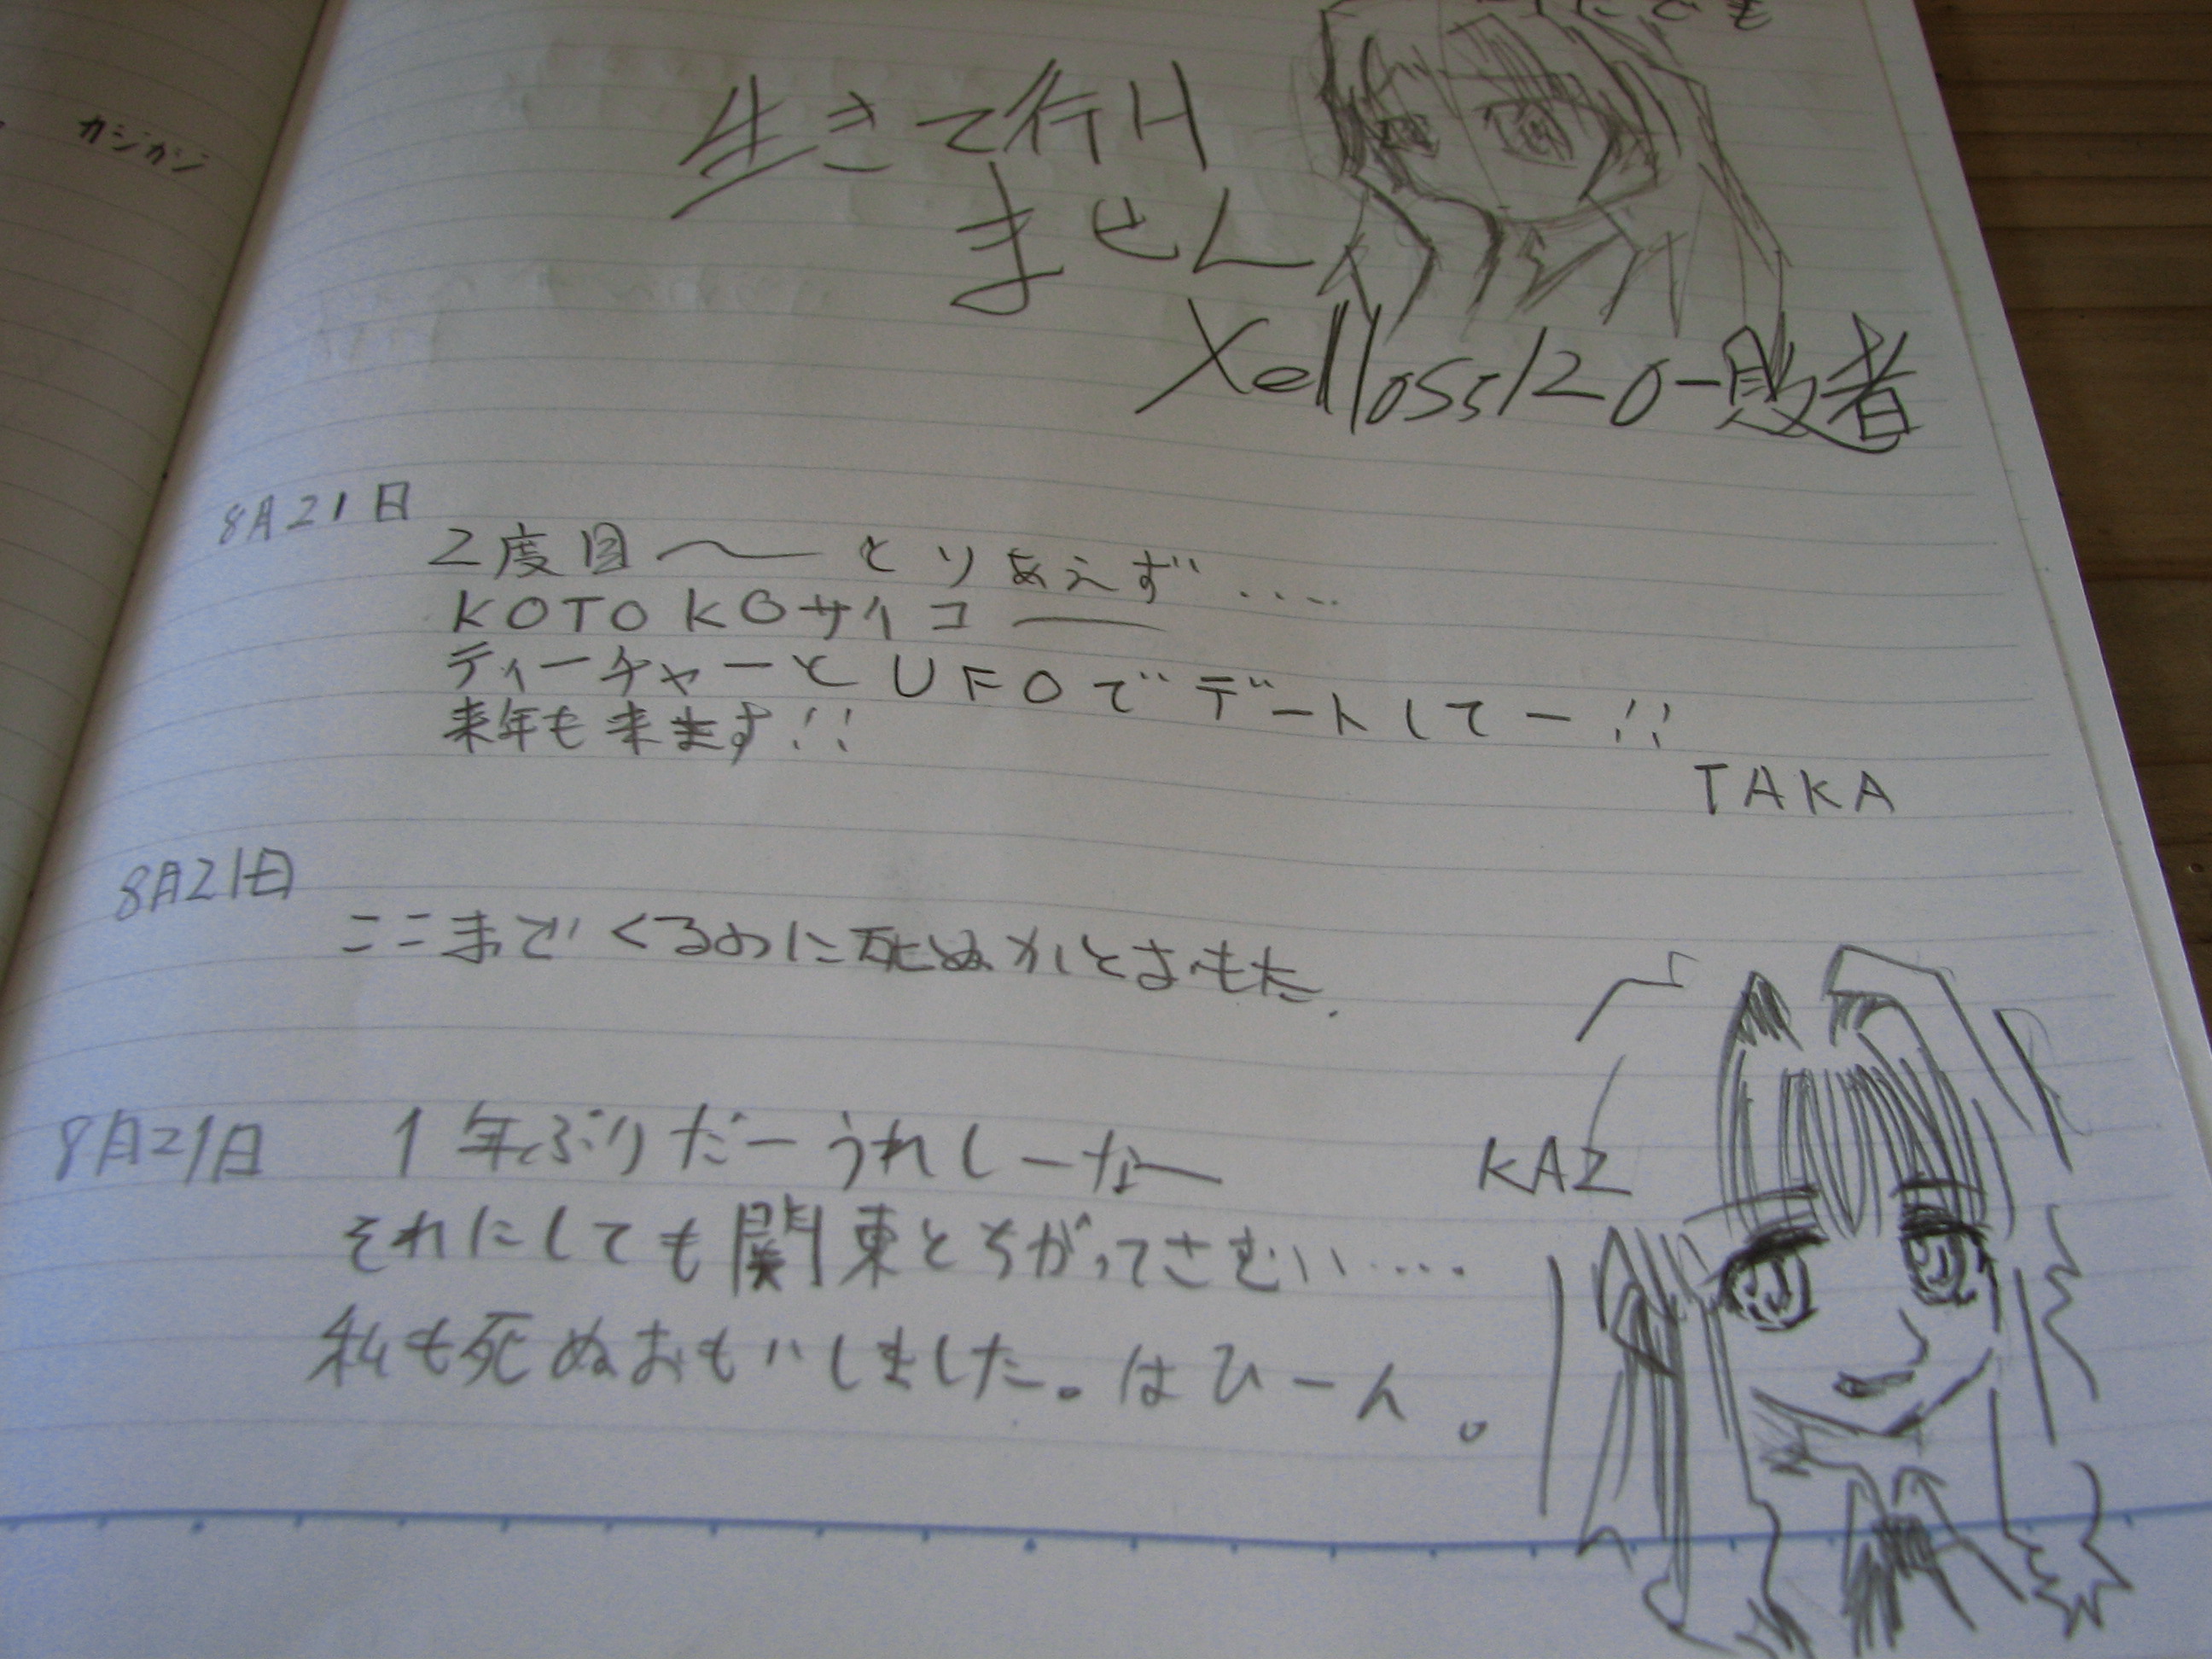 カジカジ
にでも
生きて行け
ません
Xelloss120-敗者
8月21日
2度目〜とりあえず....
KOTOKOサイコー
ティーチャーとUFOでデートしてー!!
来年も来ます!!
TAKA
8月21日
ここまでくるのに死ぬかとおもた.
8月21日 1年ぶりだーうれしーなー
KAZ
それにしても関東とちがってさむい....
私も死ぬおもいしました。はひーん。